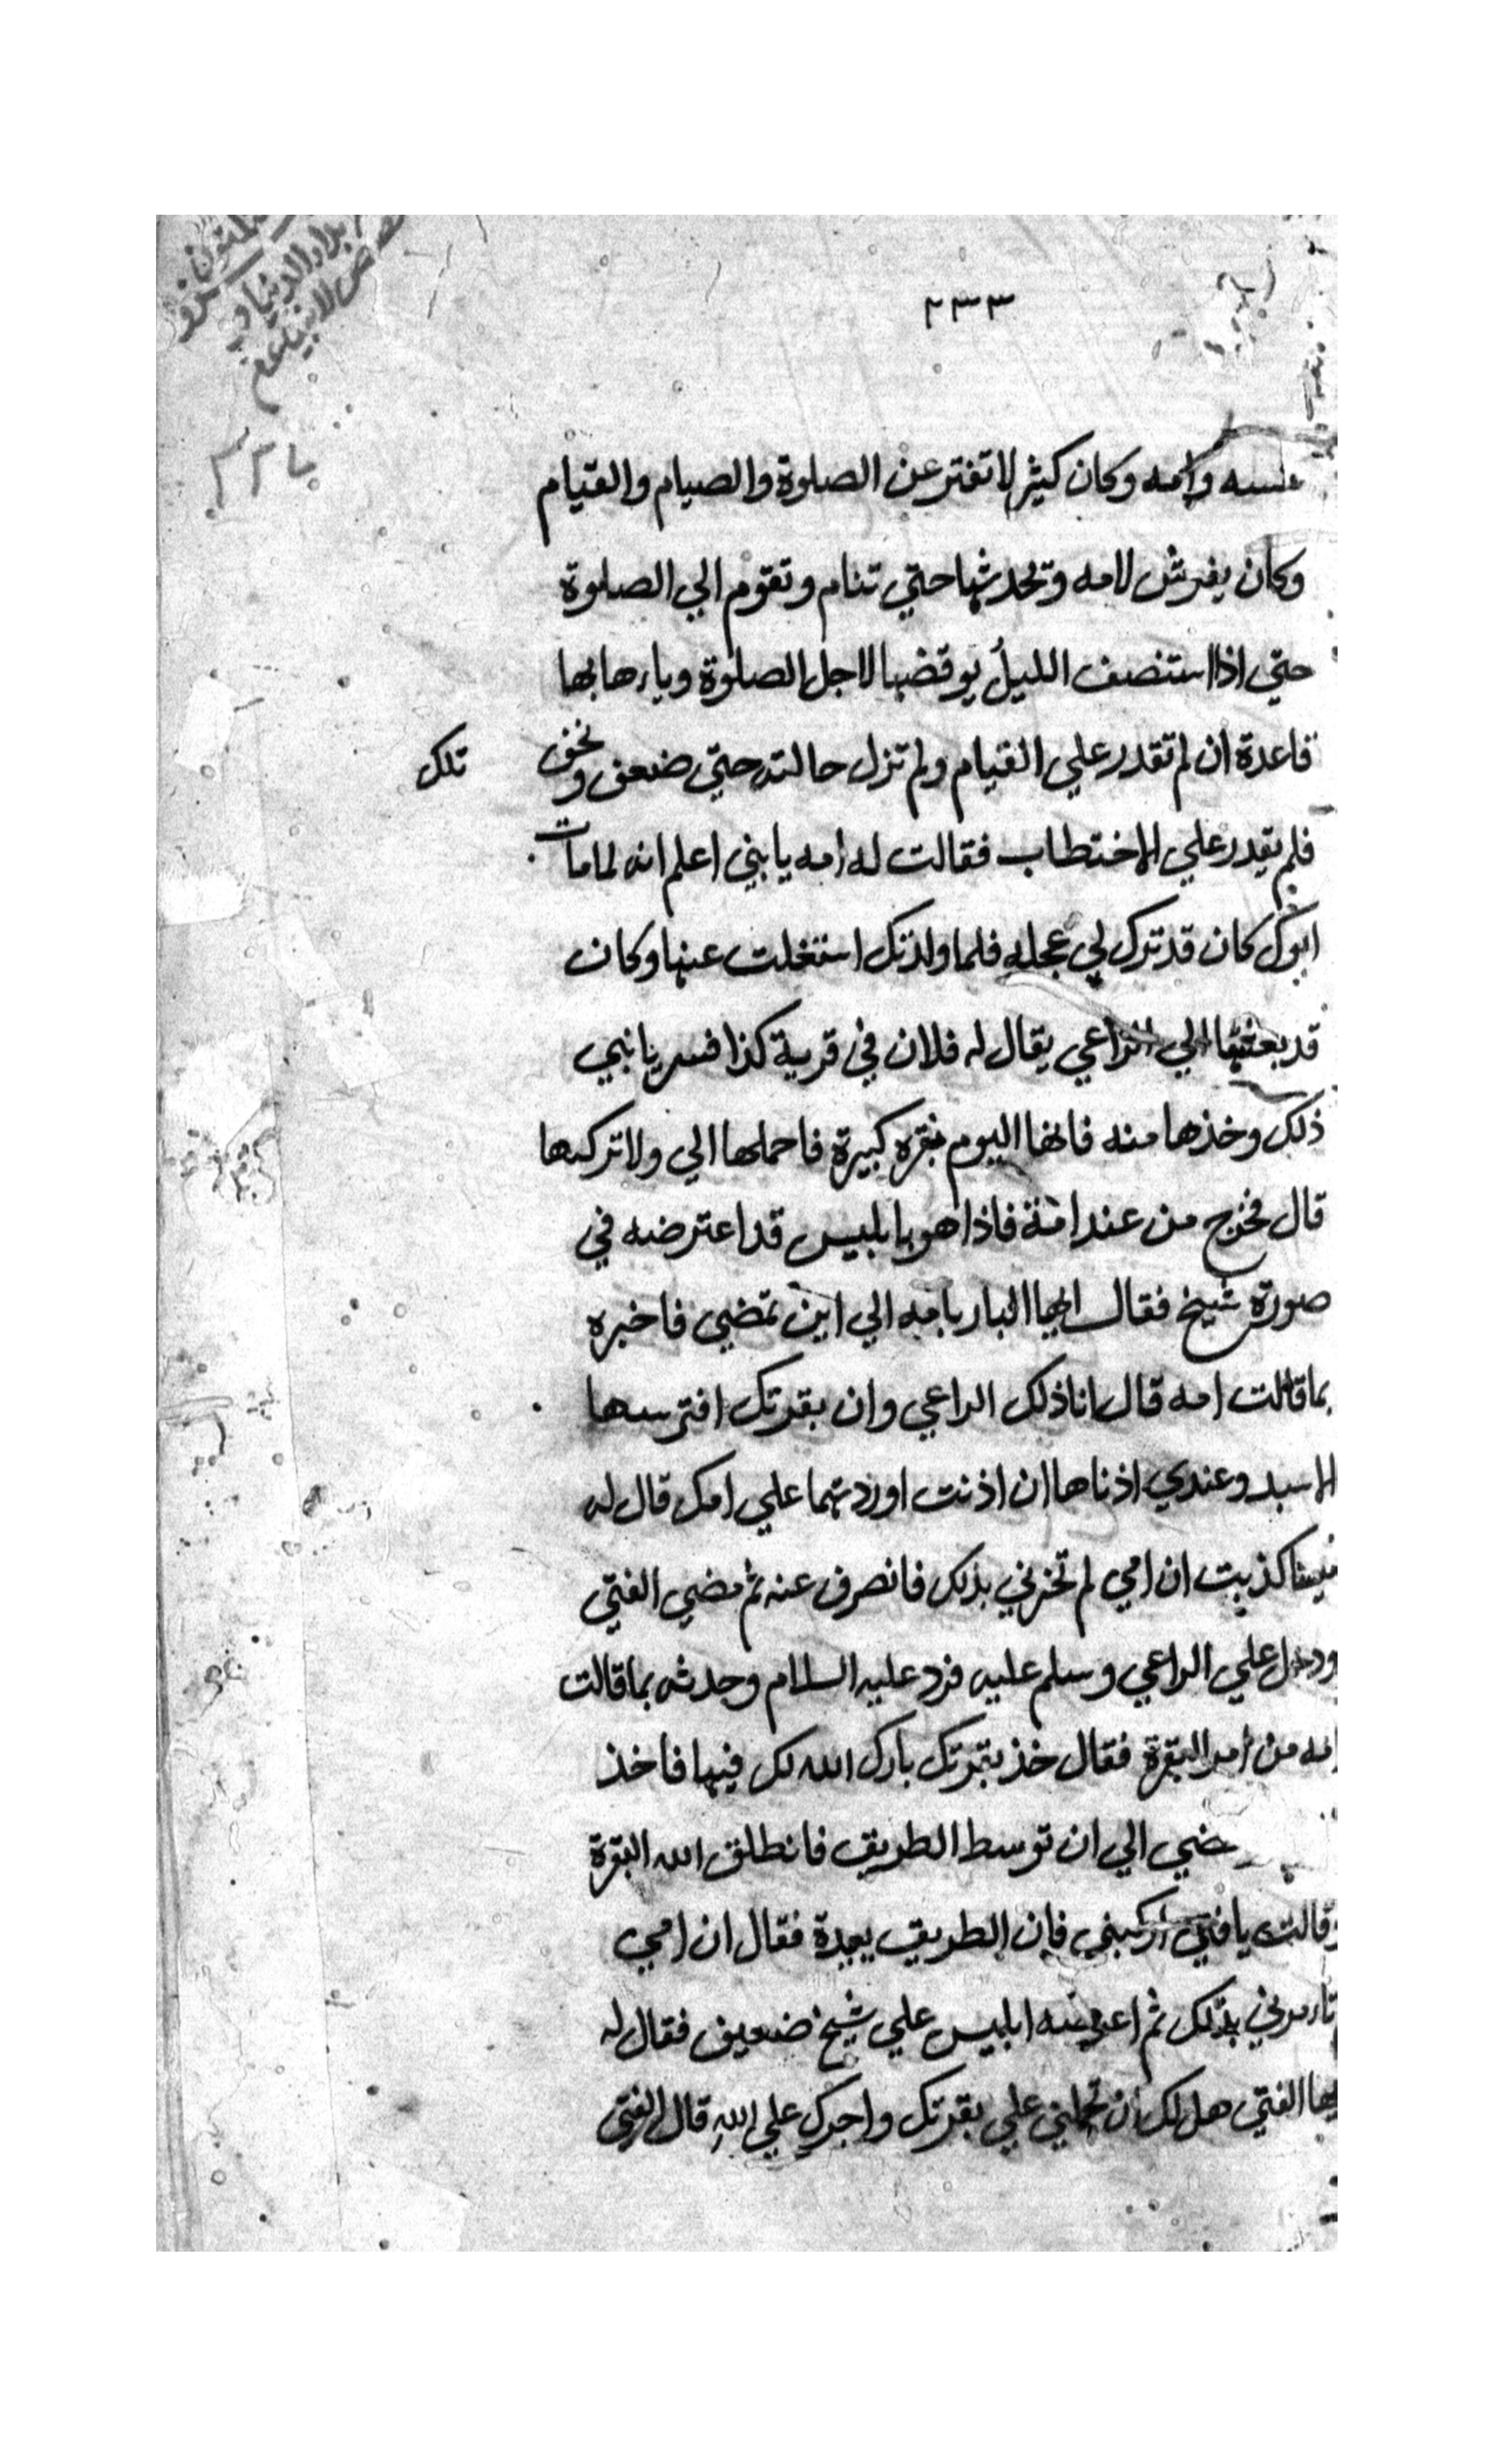 ٢٣٣
بلاد الدنيا و
قصص الانبيا عم
وامه وكان كثير لا تفتر عن الصلوة والصيام والقيام
وكان يفرش لامه وتحدثها حتي تنام وتقوم الي الصلوة
حتي اذا استنصف الليل يوقضها لاجل الصلوة ويامرها بها
قاعدة ان لم تقدر علي القيام ولم تزل حالته حتي ضعف و نحف
تلك
فلم يقدر علي الاختطاب فقالت له امه يا بني اعلم انه لما مات
ابوك كان قد ترك لي عجله فلما ولدتك اشتغلت عنها وكان
قد بعثتها الي الراعي يقال له فلان في قرية كذا فسر يا نبي
ذلك وخذها منه فانها اليوم بقره كبيرة فاحملها الي ولا تركبها
قال فخرج من عند امة فاذا هو بابليس قد اعترضه في
صورة شيخ فقال ايها البار بامه الي اين تمضي فاخبره
بما قالت امه قال انا ذلك الراعي وان بقرتك افترسها
الاسد وعندي اذناها ان اذنت اوردتهما علي امك قال له
كذبت ان امي لم تخبرني بذلك فانصرف عنه ثم مضي الفتي
ودخل علي الراعي وسلم عليه فرد عليه السلام وحدثه بما قالت
امه من امر البقرة فقال خذ بقرتك بارك الله لك فيها فاخذ
الي ان توسط الطريق فانطلق الله البقرة
وقالت يا فتي اركبني فان الطريق بعيدة فقال ان امي
تامرني بذلك ثم اعرضه ابليس علي شيخ ضعيف فقال له
ايها الفتي هل لك ان تحملني علي بقرتك واجرك علي الله قال الفتي